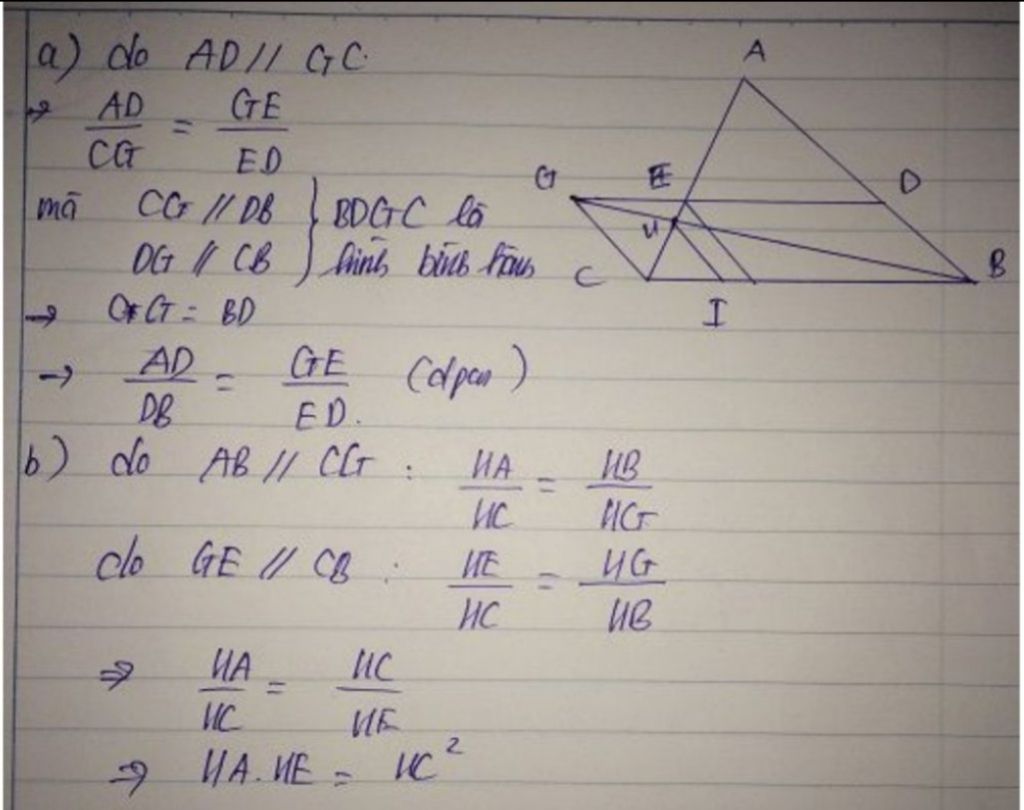 a) do AD // GC.
→ AD/CG = GE/ED
mà CG // DB } BDGC là
DG // CB } hình bình hành
→ CG = BD
→ AD/DB = GE/ED. (đpcm)
b) do AB // CG : HA/HC = HB/HG
do GE // CB : HE/HC = HG/HB
⇒ HA/HC = HC/HE
⇒ HA.HE = HC²
A
G E D
H
C I B